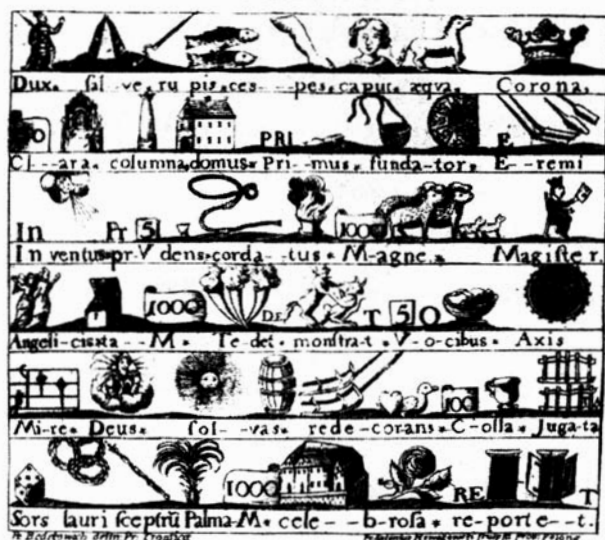 Dux. sal ve. ru pis. ces pes. caput. æqva. Corona.
PRI E
Cl--ara. columna. domus. Pri-mus. funda-tor. E--remi
In Pr 5 1000
In ventus. pr-V dens. corda--tus. M-agne. Magister.
1000 D.E. T 5 O
Angeli-cis sta--M. Te det. monstra-t. V-o-cibus. Axis
100
Mi-re. Deus. sol--vas. rede-corans. C-olla. Juga-ta
1000 RE T
Sors lauri sceptrū Palma-M. cele--b-rosa. re-porte--t.